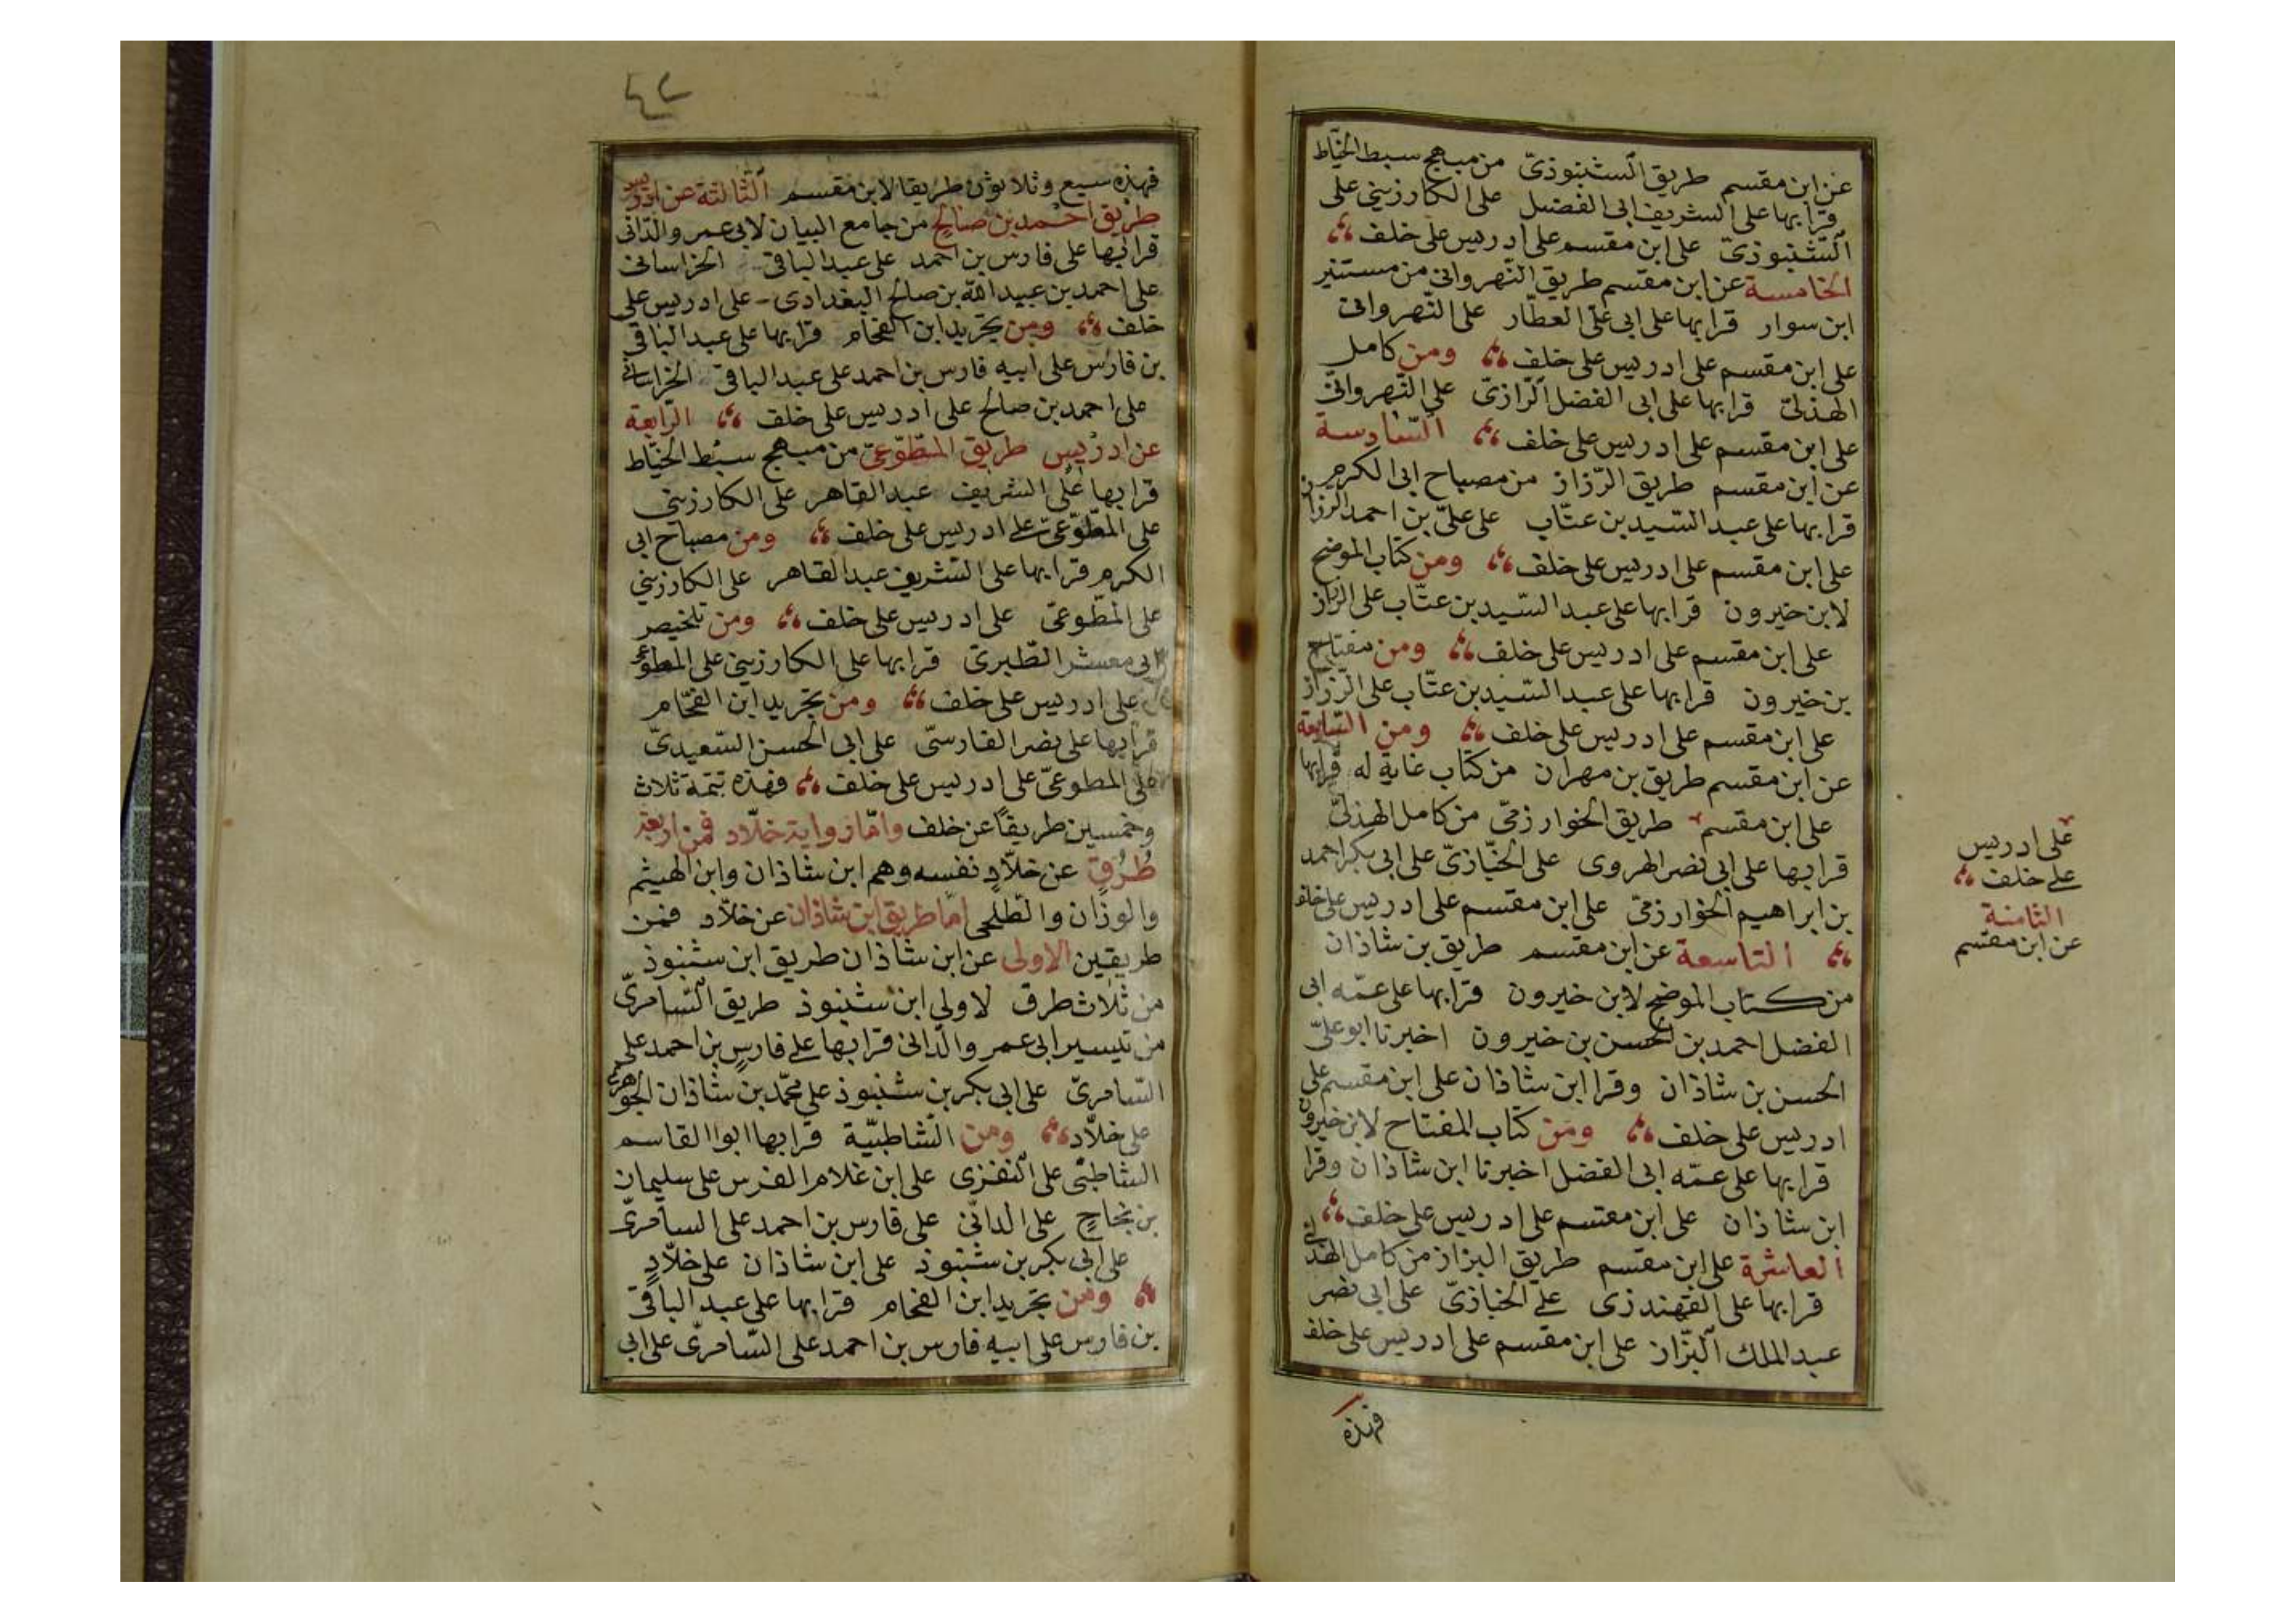 عن ابن مقسم طريق الشنبوذىّ من مبهج سبط الخيّاط
قرا بها على الشريف ابى الفضل على الكارزينى على
الشنبوذىّ على ابن مقسم على ادريس على خلف
الخامسة عن ابن مقسم طريق النّهروانى من مستنير
ابن سوار قرا بها على ابى علىّ العطّار على النّهروانى
على ابن مقسم على ادريس على خلف ومن كامل
الهذلىّ قرا بها على ابى الفضل الرّازىّ على النّهروانىّ
على ابن مقسم على ادريس على خلف السّادسة
عن ابن مقسم طريق الرّزاز من مصباح ابى الكرم
قرا بها على عبد السّيد بن عتّاب على علىّ بن احمد الرزاز
على ابن مقسم على ادريس على خلف ومن كتاب الموضح
لابن خيرون قرا بها على عبد السّيد بن عتّاب على الرزاز
على ابن مقسم على ادريس على خلف ومن مفتاح
بن خيرون قرا بها على عبد السّيد بن عتّاب على الرّزاز
على ابن مقسم على ادريس على خلف ومن السّابعة
عن ابن مقسم طريق بن مهران من كتاب غاية له قرا بها
على ابن مقسم طريق الخوارزمىّ من كامل الهذلىّ
قرا بها على ابى نصر الهروى على الخبّازىّ على ابى بكر احمد
بن ابراهيم الخوارزمىّ على ابن مقسم على ادريس على خلف
التاسعة عن ابن مقسم طريق بن شاذان
من كتاب الموضح لابن خيرون قرا بها على عمّه ابى
الفضل احمد بن الحسن بن خيرون اخبرنا ابو علىّ
الحسن بن شاذان وقرا ابن شاذان على ابن مقسم على
ادريس على خلف ومن كتاب المفتاح لابن خيرون
قرا بها على عمّه ابى الفضل اخبرنا ابن شاذان وقرا
ابن شاذان على ابن مقسم على ادريس على خلف
العاشرة على ابن مقسم طريق البزاز من كامل الهذلى
قرا بها على القهندزى على الخبازىّ على ابى نصر
عبد الملك البّزاز على ابن مقسم على ادريس على خلف
فهذه
على ادريس
على خلف
الثامنة
عن ابن مقسم
٤٢
فهذه سبع وثلاثون طريقا لابن مقسم الثالثة عن ادريس
طريق احمد بن صالح من جامع البيان لابى عمرو الدّانى
قرا بها على فارس بن احمد على عبد الباقى الخراسانى
على احمد بن عبيد الله بن صالح البغدادى على ادريس على
خلف ومن تجريد ابن الفحام قرا بها على عبد الباقى
بن فارس على ابيه فارس بن احمد على عبد الباقى الخراسانى
على احمد بن صالح على ادريس على خلف الرّابعة
عن ادريس طريق المطّوّعىّ من مبهج سبط الخيّاط
قرا بها على الشريف عبد القاهر على الكارزينى
على المطّوّعىّ على ادريس على خلف ومن مصباح ابى
الكرم قرا بها على الشريف عبد القاهر على الكارزينى
على المطّوعىّ على ادريس على خلف ومن تلخيص
ابى معشر الطّبرىّ قرا بها على الكارزينى على المطوعى
على ادريس على خلف ومن تجريد ابن الفحّام
قرا بها على نصر الفارسىّ على ابى الحسن السّعيدىّ
على المطوعىّ على ادريس على خلف فهذه تتمة ثلاث
وخمسين طريقًا عن خلف وامّا رواية خلّاد فمن اربعة
طُرُق عن خلّادٍ نفسه وهم ابن شاذان وابن الهيثم
والوزّان والطّلحى امّا طريق ابن شاذان عن خلّاد فمن
طريقين الاولى عن ابن شاذان طريق ابن شنبوذ
من ثلاث طرق لاولى ابن شنبوذ طريق السّامرىّ
من تيسير ابى عمرو الدّانى قرا بها على فارس بن احمد على
السّامرىّ على ابى بكر بن شنبوذ على محمّد بن شاذان الجوهرى
على خلّاد ومن الشّاطبيّة قرا بها ابوا القاسم
الشاطبىّ على النفزى على ابن غلام الفرس على سليمان
بن نجاحٍ على الدانىّ على فارس بن احمد على السامرىّ
على ابى بكر بن شنبوذ على ابن شاذان على خلّادٍ
ومن تجريد ابن الفحام قرا بها على عبد الباقى
بن فارس على ابيه فارس بن احمد على السّامرىّ على ابى